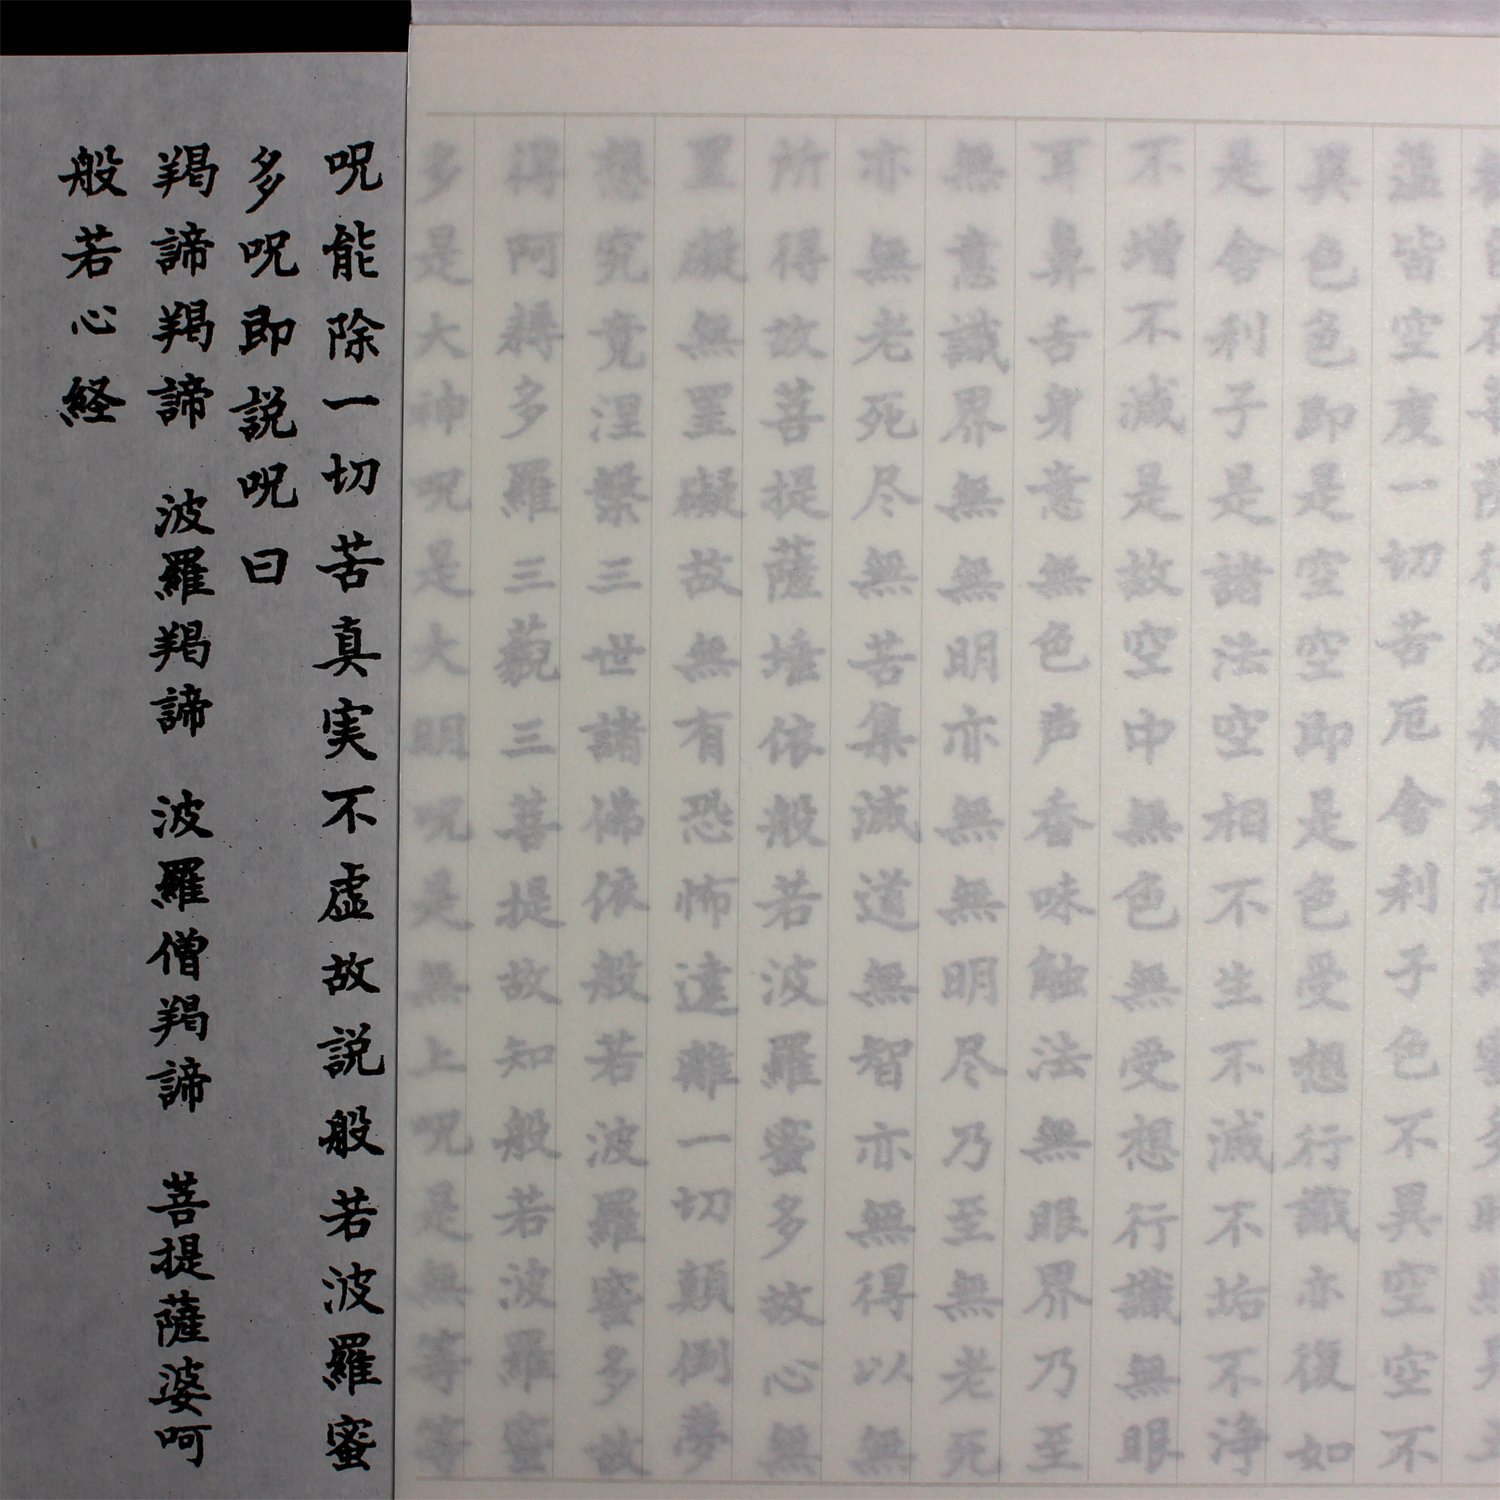 蘊皆空度一切苦厄舎利子色不異空空不
異色色即是空空即是色受想行識亦復如
是舎利子是諸法空相不生不滅不垢不浄
不増不減是故空中無色無受想行識無眼
耳鼻舌身意無色声香味触法無眼界乃至
無意識界無無明亦無無明尽乃至無老死
亦無老死尽無苦集滅道無智亦無得以無
所得故菩提薩埵依般若波羅蜜多故心無
罣礙無罣礙故無有恐怖遠離一切顛倒夢
想究竟涅槃三世諸佛依般若波羅蜜多故
得阿耨多羅三藐三菩提故知般若波羅蜜
多是大神呪是大明呪是無上呪是無等等
呪能除一切苦真実不虚故説般若波羅蜜
多呪即説呪曰
羯諦羯諦 波羅羯諦 波羅僧羯諦 菩提薩婆呵
般若心経